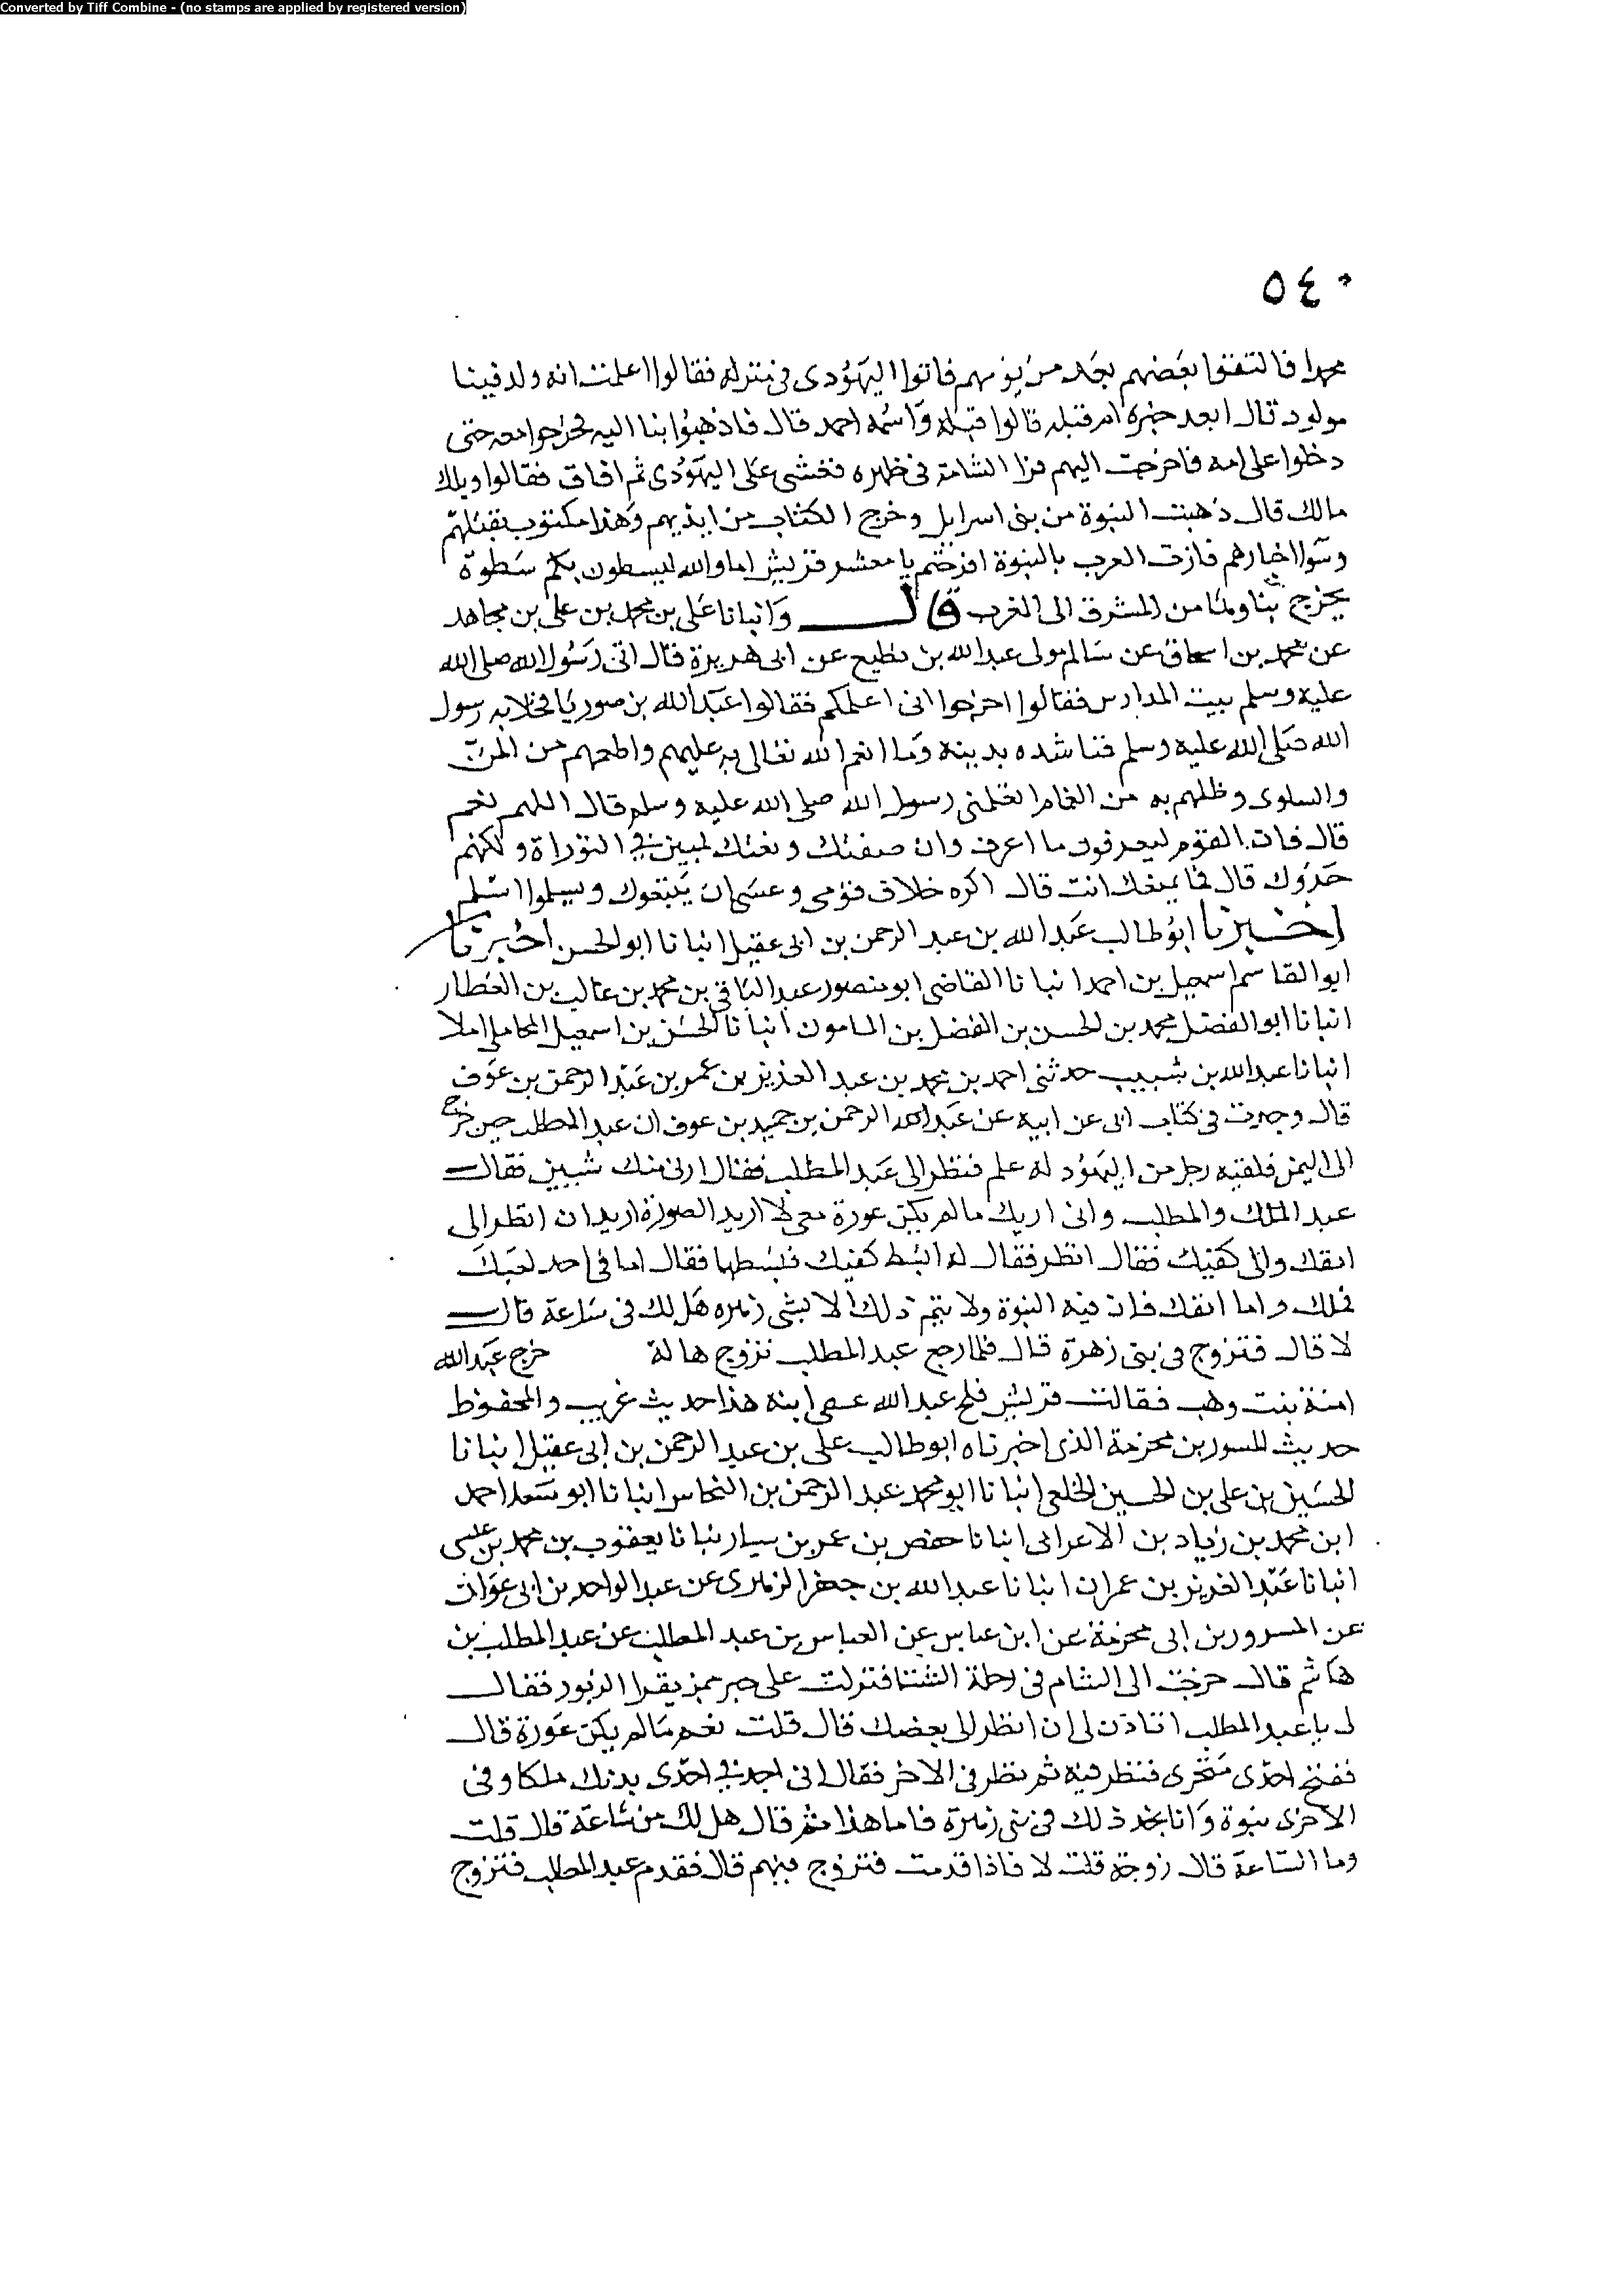 Converted by Tiff Combine - (no stamps are applied by registered version)
٥٤٠
محمدا فالتفقوا بعضهم بعد من يومهم فاتوا اليهودى فى منزله فقالوا اعلمت انه ولد فينا
مولود قال ابعد خبرى ام قبله قالوا قبله واسمه احمد قال فاذهبوا بنا اليه فخرجوا معه حتى
دخلوا على امه فاخرجت اليهم فرا الشامة فى ظهره فغشى على اليهودى ثم افاق فقالوا ويلك
مالك قال ذهبت النبوة من بنى اسرايل وخرج الكتاب من ايديهم وهذا مكتوب بقتلهم
وسوا اخبارهم فازت العرب بالنبوة افرحتم يا معشر قريش اما والله ليسطون بكم سطوة
يخرج من المشرق الى الغرب قال وانبانا على بن محمد بن على بن مجاهد
عن محمد بن اسحاق عن سالم مولى عبد الله بن مطيع عن ابى هريرة قال اتى رسول الله صلى الله
عليه وسلم بيت المدارس فقالوا اخرجوا الى اعلمكم فقالوا عبد الله بن صوريا فخلا به رسول
الله صلى الله عليه وسلم فناشده بدينه وما انعم الله تعالى به عليهم واطعمهم من المن
والسلوى وظلهم به من الغمام اتعلمنى رسول الله صلى الله عليه وسلم قال اللهم نعم
قال فان القوم ليعرفون ما اعرف وان صفتك ونعتك لمبين فى التوراة ولكنهم
حسدوك قال فما يمنعك انت قال اكره خلاف قومى وعسى ان يتبعوك ويسلموا اسلم
اخبرنا ابو طالب عبد الله بن عبد الرحمن بن ابى عقيل انبانا ابو الحسن اخبرنا
ابو القاسم اسمعيل بن احمد انبانا القاضى ابو منصور عبد الباقى بن محمد بن غالب بن العطار
انبانا ابو الفضل محمد بن الحسن بن الفضل بن المامون انبانا الحسين بن اسمعيل المحاملى املا
انبانا عبد الله بن شبيب حدثنى احمد بن محمد بن عبد العزيز بن عمر بن عبد الرحمن بن عوف
قال وجدت فى كتاب ابى عن ابيه عن عبد الله الرحمن بن حميد بن عوف ان عبد المطلب حين خرج
الى اليمن فلقيه رجل من اليهود له علم فنظر الى عبد المطلب فقال ارنى منك شيين فقال
عبد الملك والمطلب وانى اريك ما لم يكن عورة معى لا اريد الصورة اريد ان انظر الى
انفك والى كفيك فقال انظر فقال له ابسط كفيك فبسطها فقال اما فى احد لعبك
فملك واما انفك فان فيه النبوة ولا يتم ذلك الا بشى زهره هل لك فى شاعة قال
لا قال فتزوج فى بنى زهرة قال فلما رجع عبد المطلب تزوج هالة خرج عبد الله
امنة بنت وهب فقالت قريش فلج عبد الله على ابنه هذا حديث غريب والمحفوظ
حديث المسور بن مخرمة الذى اخبرناه ابو طالب على بن عبد الرحمن بن ابى عقيل انبانا
الحسين بن على بن الحسين الخلعى انبانا ابو محمد عبد الرحمن بن النحاس انبانا ابو سعد احمد
ابن محمد بن زياد بن الاعرابى انبانا حفص بن عمر بن سيار نبانا يعقوب بن محمد بن عيسى
انبانا عبد العزيز بن عمران انبانا عبد الله بن جعفر الزهرى عن عبد الواحد بن ابى عوان
عن المسرور بن ابى مخرمة عن ابن عباس عن العباس بن عبد المطلب عن عبد المطلب بن
هاشم قال خرجت الى الشام فى رحلة الشتا فنزلت على حبر ممن يقرا الزبور فقال
لى يا عبد المطلب اتاذن لى ان انظر الى بعضك قال قلت نعم ما لم يكن عورة قال
ففتح احدى منخرى فنظر فيه ثم نظر فى الاخر فقال انى اجد فى احدى يديك ملكا وفى
الاخرى نبوة وانا نجد ذلك فى بنى زهرة فاما هذا ثم قال هل لك من شاعة قال قلت
وما الشاعة قال زوجة قلت لا فاذا قدمت فتزوج منهم قال فقدم عبد المطلب فتزوج